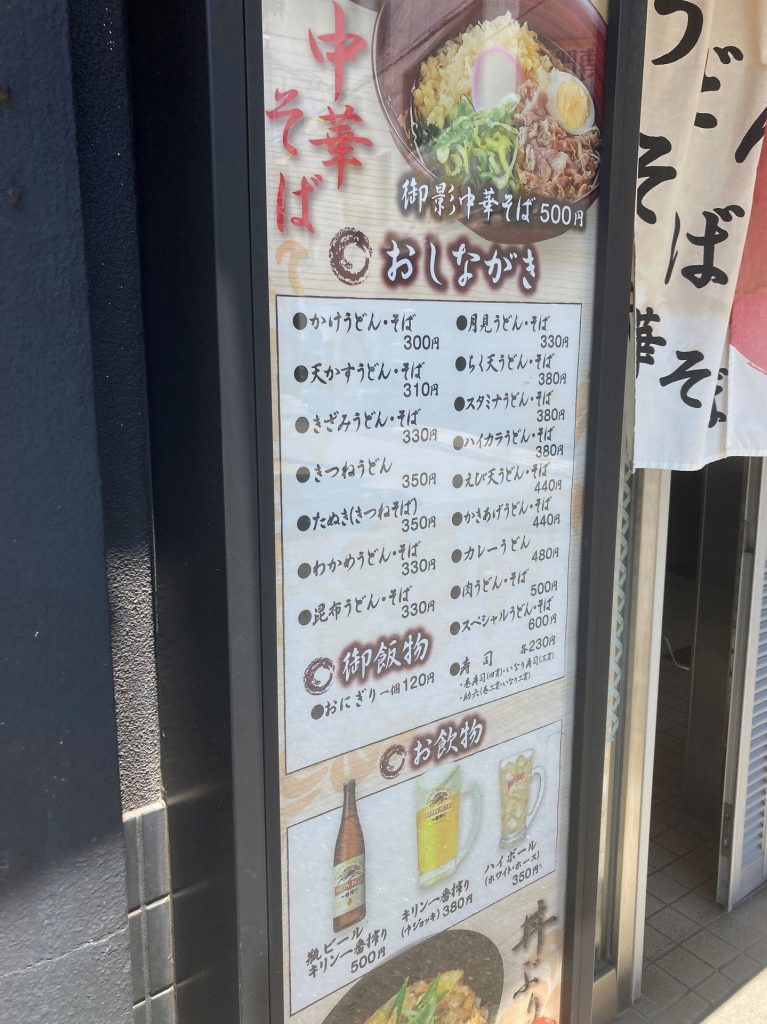 中華
そば
御影中華そば 500円
おしながき
●かけうどん・そば
300円
●天かすうどん・そば
310円
●きざみうどん・そば
330円
●きつねうどん
350円
●たぬき(きつねそば)
350円
●わかめうどん・そば
330円
●昆布うどん・そば
330円
●月見うどん・そば
330円
●ちく天うどん・そば
380円
●スタミナうどん・そば
380円
●ハイカラうどん・そば
380円
●えび天うどん・そば
440円
●かきあげうどん・そば
440円
●カレーうどん
480円
●肉うどん・そば
500円
●スペシャルうどん・そば
600円
●寿司 各230円
・巻寿司(四貫)・いなり寿司(三貫)
・助六(巻二貫・いなり二貫)
御飯物
●おにぎり一個 120円
お飲物
瓶ビール
キリン一番搾り
500円
キリン一番搾り
(中ジョッキ) 380円
ハイボール
(ホワイトホース)
350円
丼ぶり
うどん
そば
華そば